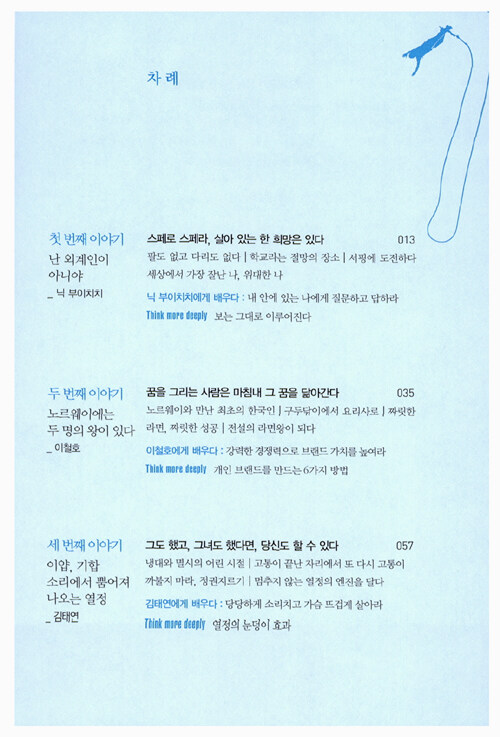 차 례
첫 번째 이야기
난 외계인이
아니야
_ 닉 부이치치
스페로 스페라, 살아 있는 한 희망은 있다 013
팔도 없고 다리도 없다 | 학교라는 절망의 장소 | 서핑에 도전하다
세상에서 가장 잘난 나, 위대한 나
닉 부이치치에게 배우다 : 내 안에 있는 나에게 질문하고 답하라
Think more deeply 보는 그대로 이루어진다
두 번째 이야기
노르웨이에는
두 명의 왕이 있다
_ 이철호
꿈을 그리는 사람은 마침내 그 꿈을 닮아간다 035
노르웨이와 만난 최초의 한국인 | 구두닦이에서 요리사로 | 짜릿한
라면, 짜릿한 성공 | 전설의 라면왕이 되다
이철호에게 배우다 : 강력한 경쟁력으로 브랜드 가치를 높여라
Think more deeply 개인 브랜드를 만드는 6가지 방법
세 번째 이야기
이얍, 기합
소리에서 뿜어져
나오는 열정
_ 김태연
그도 했고, 그녀도 했다면, 당신도 할 수 있다 057
냉대와 멸시의 어린 시절 | 고통이 끝난 자리에서 또 다시 고통이
까불지 마라, 정권지르기 | 멈추지 않는 열정의 엔진을 달다
김태연에게 배우다 : 당당하게 소리치고 가슴 뜨겁게 살아라
Think more deeply 열정의 눈덩이 효과